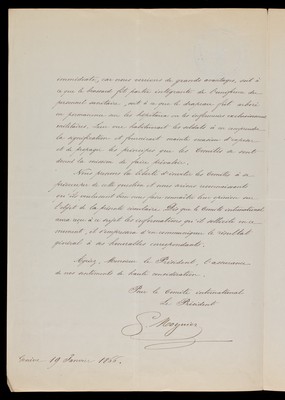 immédiate, car nous verrions de grands avantages, soit à
ce que le brassard fît partie intégrante de l'uniforme du
personnel sanitaire, soit à ce que le drapeau fût arboré
en permanence sur les hôpitaux ou les infirmeries exclusivement
militaires. L'on habituerait les soldats à en comprendre
la signification et fournirait mainte occasion d'exposer
et de propager les principes que les Comités se sont
donné la mission de faire prévaloir.
Nous prenons la liberté d'inviter les Comités à se
préoccuper de cette question et nous serions reconnaissants
qu'ils voulussent bien nous faire connaître leur opinion sur
l'objet de la présente circulaire. Dès que le Comité international
aura reçu à ce sujet les informations qu'il sollicite en ce
moment, il s'empressera d'en communiquer le résultat
général à ses honorables correspondants.
Agréez, Monsieur le Président, l'assurance
de nos sentiments de haute considération.
Pour le Comité international
Le Président
G. Moynier
Genève 19 1866.